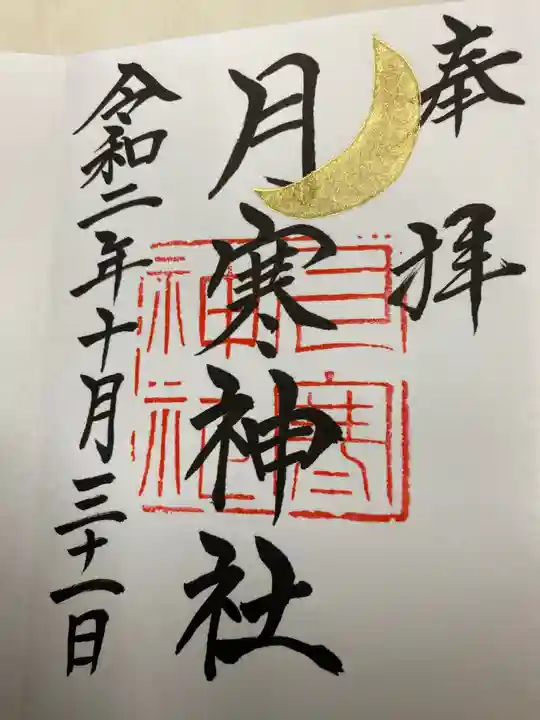 奉拝
月寒神社
令和二年十月三十一日
月寒神社